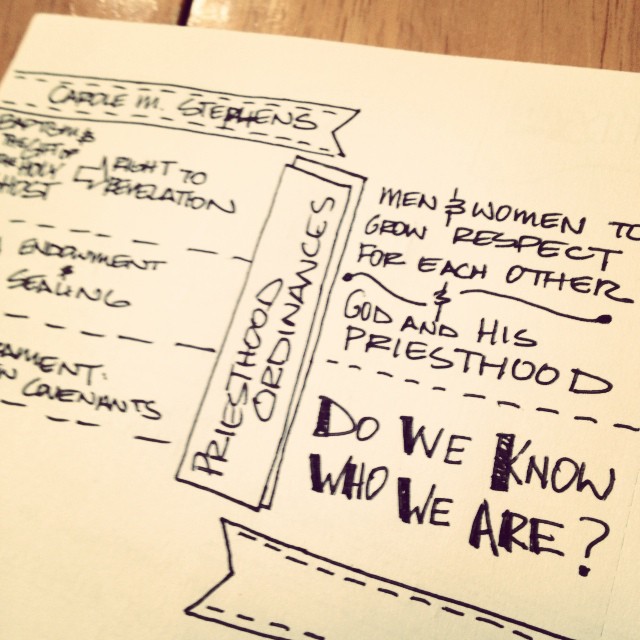 CAROLE M. STEPHENS
BAPTISM &
RIGHT TO
REVELATION
ENDOWMENT
&
SEALING
COVENANTS
PRIESTHOOD
ORDINANCES
MEN & WOMEN TO
GROW RESPECT
FOR EACH OTHER
&
GOD AND HIS
PRIESTHOOD
DO WE KNOW
WHO WE ARE?